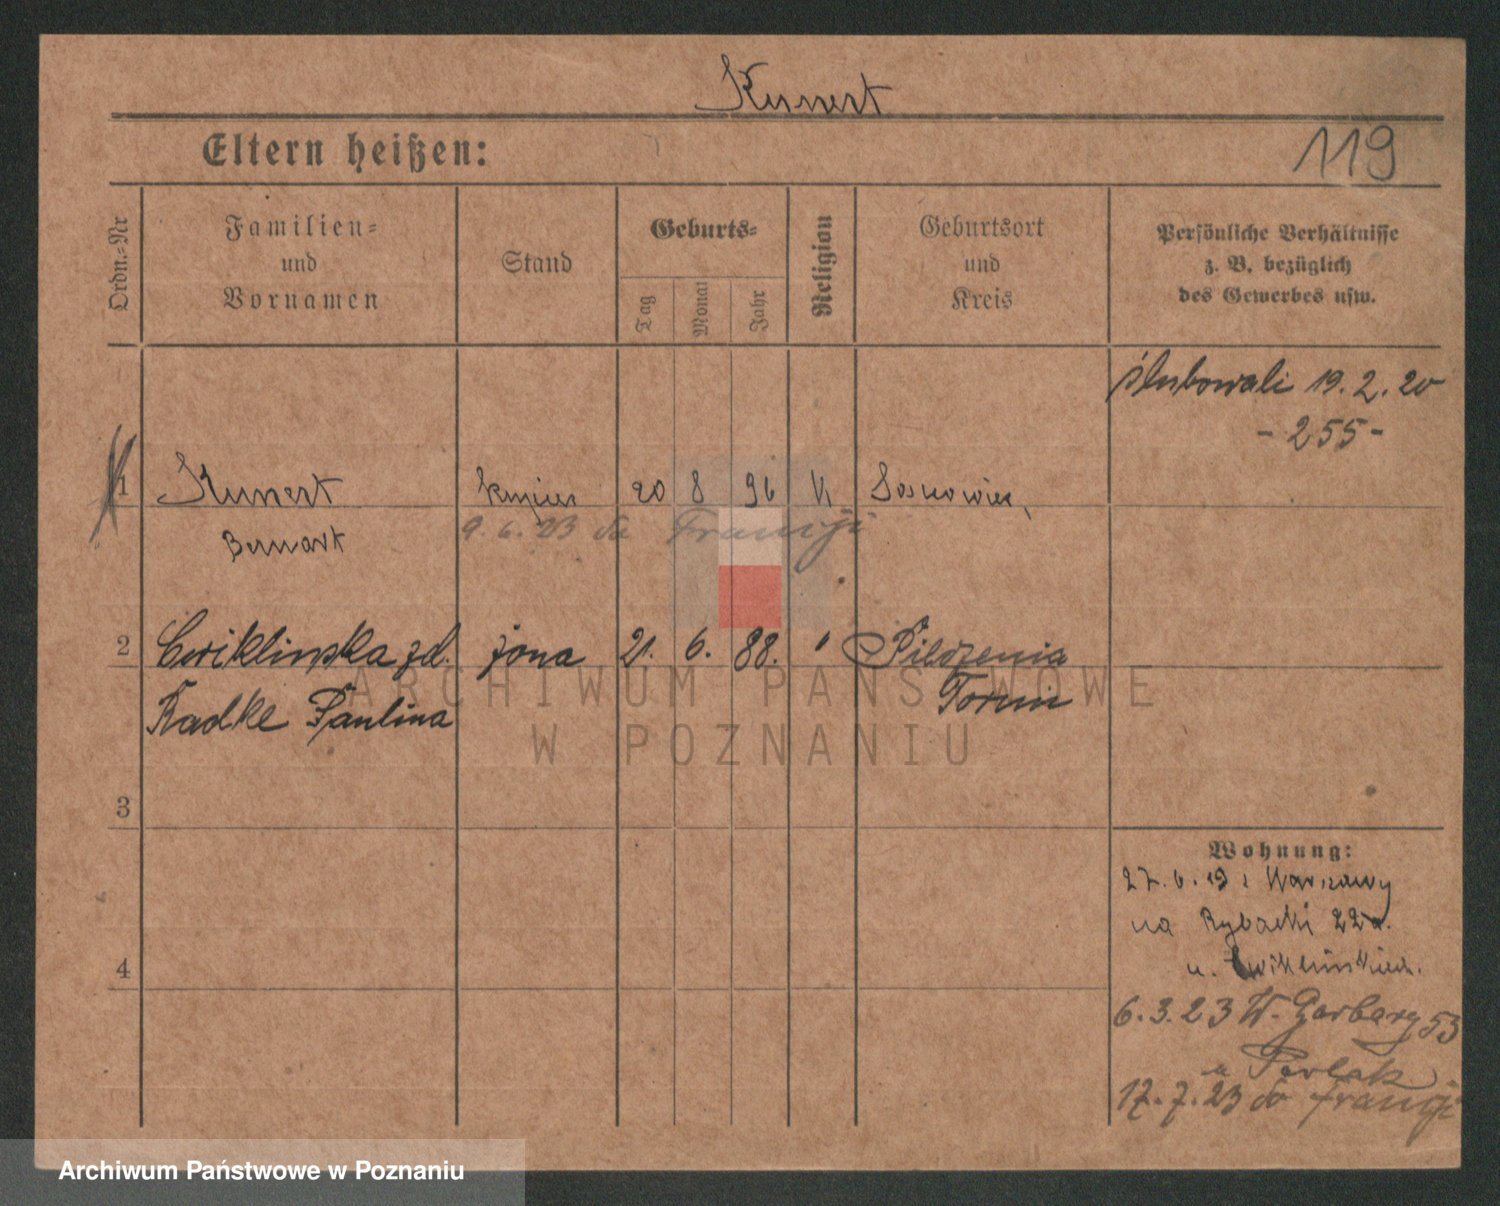 Kunert
119
Eltern heißen:
Ordn.-Nr
Familien= und Vornamen
Stand
Geburts=
Tag
Monat
Jahr
Religion
Geburtsort und Kreis
Persönliche Verhältnisse z. B. bezüglich des Gewerbes usw.
ślubowali 19. 2. 20
- 255 -
1 Kunert 20 8 96 K Sosnowiec,
9. 6. 23 do Francji
Bernart
2 Cwiklinska zd. żona 21. 6. 88. " Pilozenia
Radke Paulina Torun
3
4
Wohnung:
27. 6. 19 z Warszawy
na Rybacki 22a.
u. Cwiklinskich.
6. 3. 23 W. Garbary 53
u Pawlak
17. 7. 23 do Francji
ARCHIWUM PAŃSTWOWE
W POZNANIU
Archiwum Państwowe w Poznaniu